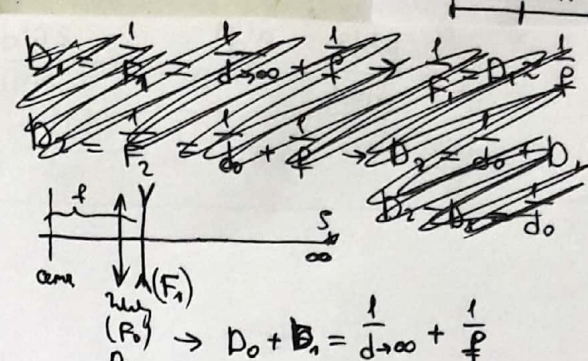 D₁ = 1/F₁ = 1/d→∞ + 1/f → 1/F₁ = D₁ = 1/f
D₂ = 1/F₂ = 1/d₀ + 1/f → D₂ = 1/d₀ + D₁
D₂ - D₁ = 1/d₀
f
S
∞
(F₁)
(F₀) → D₀ + D₁ = 1/d→∞ + 1/f